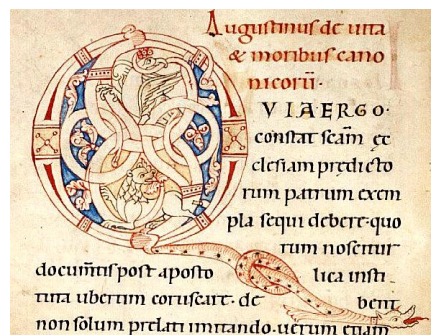 Augustinus de uita
& moribus cano
nicorū·
QVIA·ERGO·
constat scām ec
clesiam predicto
rum patrum exem
pla sequi debere· quo
rum noscitur
documtis post aposto lica insti
tuta ubertim coruscare· de bent
non solum prelati imitando· uerum etiam